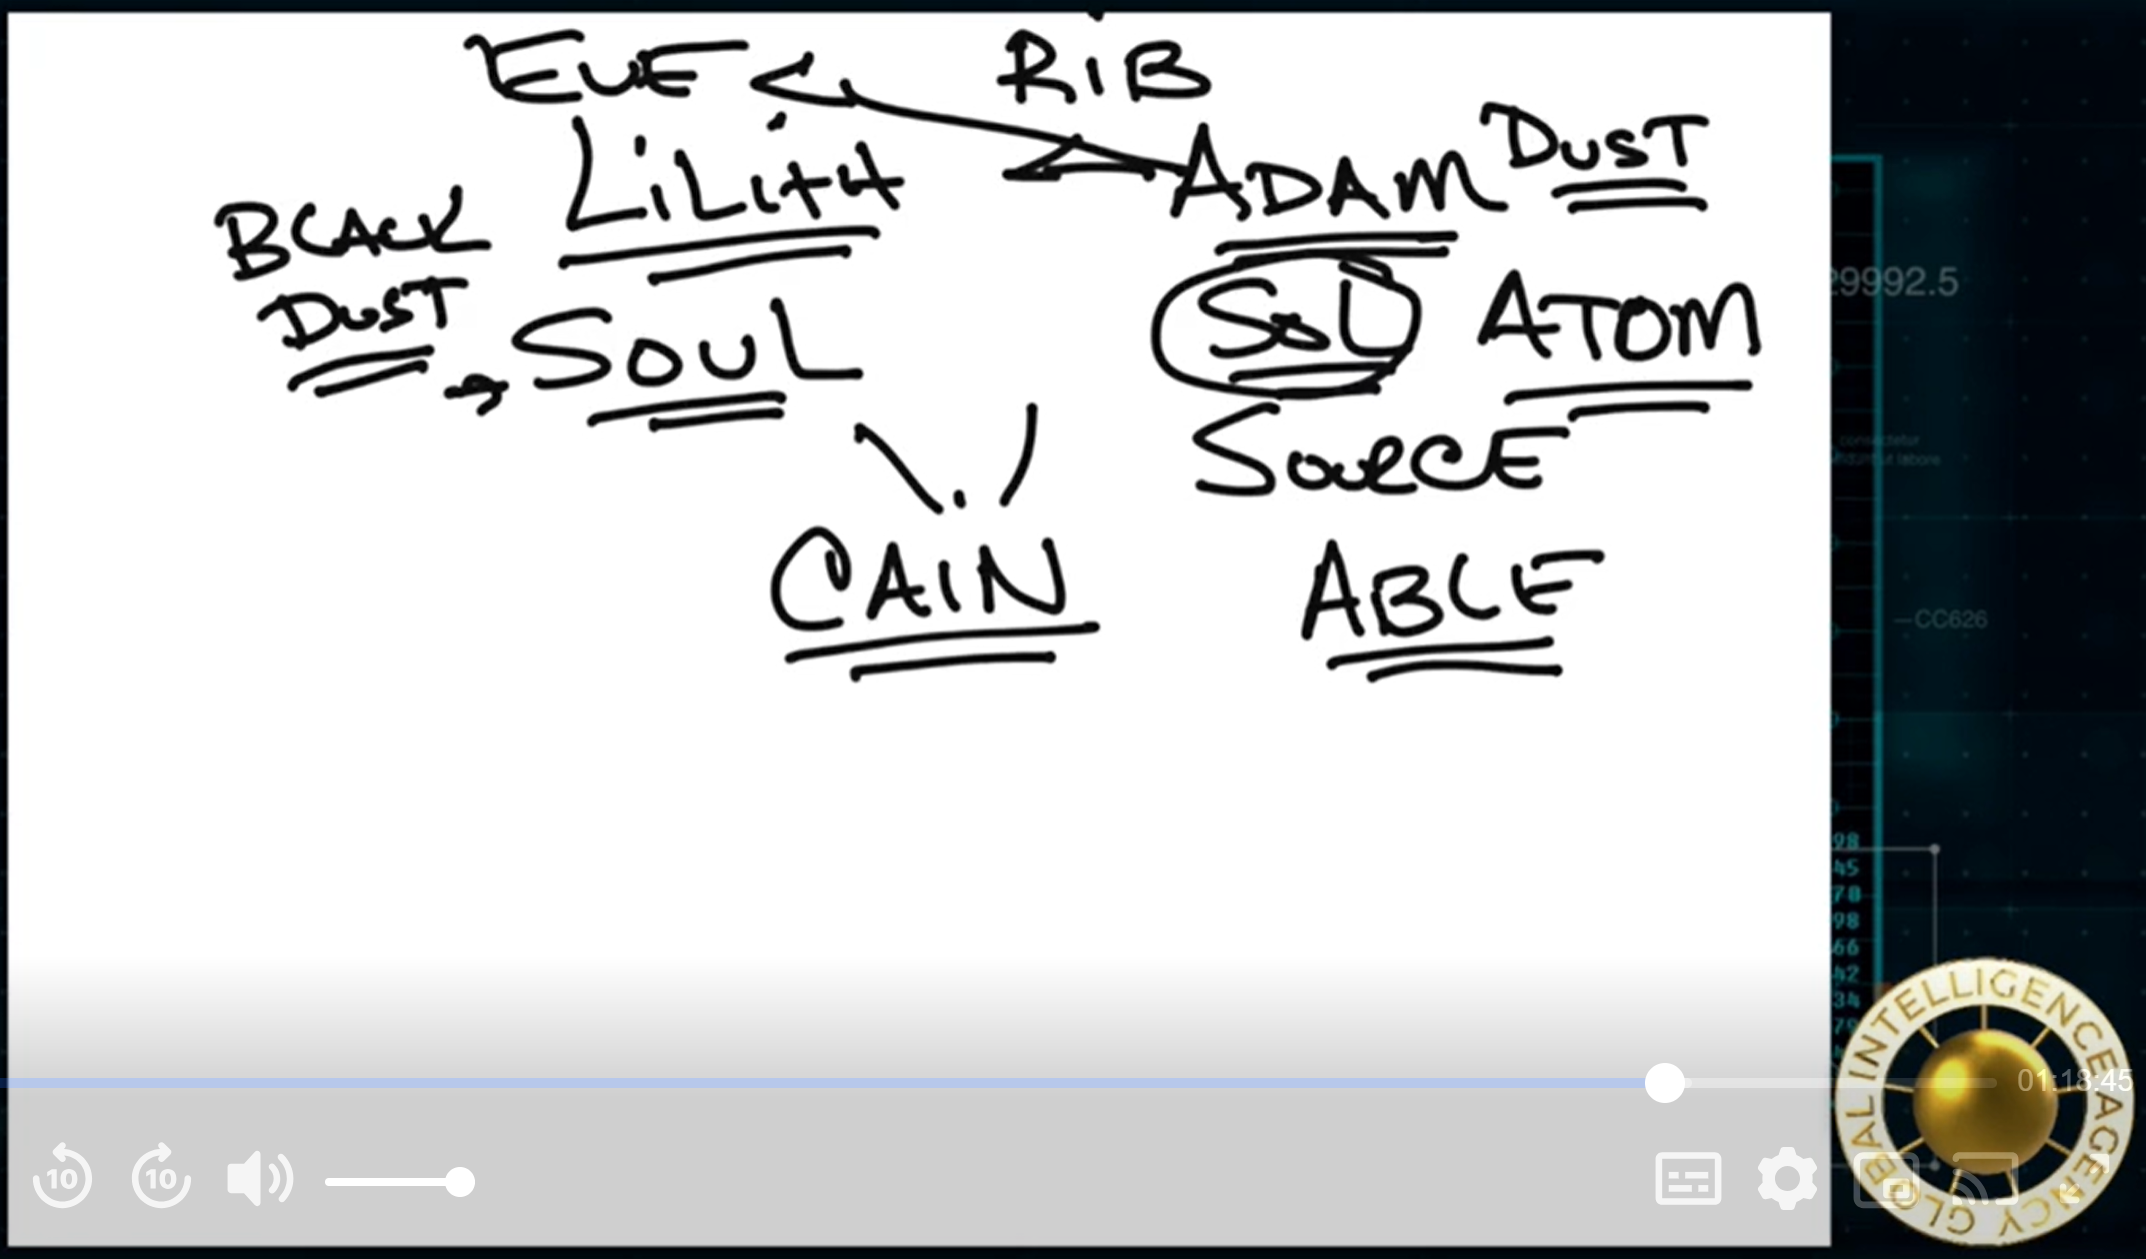 EVE RIB
LILITH ADAM DUST
BLACK
DUST SOUL SOL ATOM
SOURCE
CAIN ABLE
29992.5
CC626
98
45
78
98
66
42
34
GLOBAL INTELLIGENCE AGENCY
01:18:45
10 10